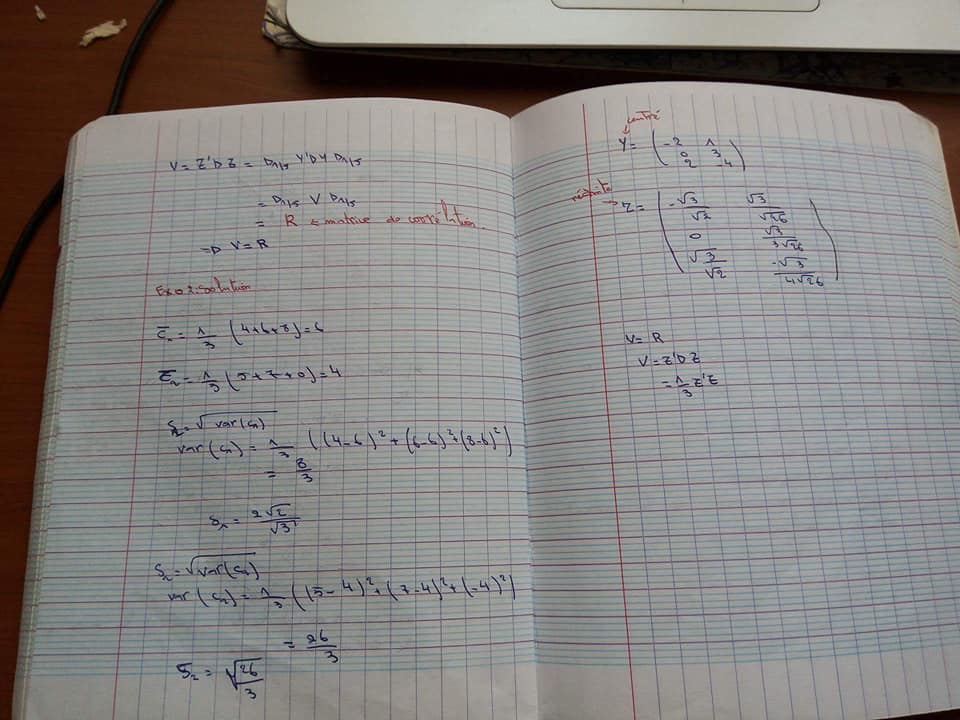 V = Z'DZ = D1/s Y'DY D1/s
= D1/s V D1/s
= R ← matrice de corrélation.
⇒ V = R
Exo 2: Solution
c̄₁ = 1/3 (4+6+8) = 6
c̄₂ = 1/3 (5+7+0) = 4
S₁ = √var(c₁)
var(c₁) = 1/3 ((4-6)² + (6-6)² + (8-6)²)
= 8/3
S₁ = 2√2/√3
S₂ = √var(c₂)
var(c₂) = 1/3 ((5-4)² + (7-4)² + (-4)²)
= 26/3
S₂ = √26/3
centré
Y = ( -2 1
0 3
2 -4 )
réduite
→ Z = ( -√3/√2 √3/√26
0 √3/3√26
√3/√2 -√3/4√26 )
V = R
V = Z'DZ
= 1/3 Z'Z